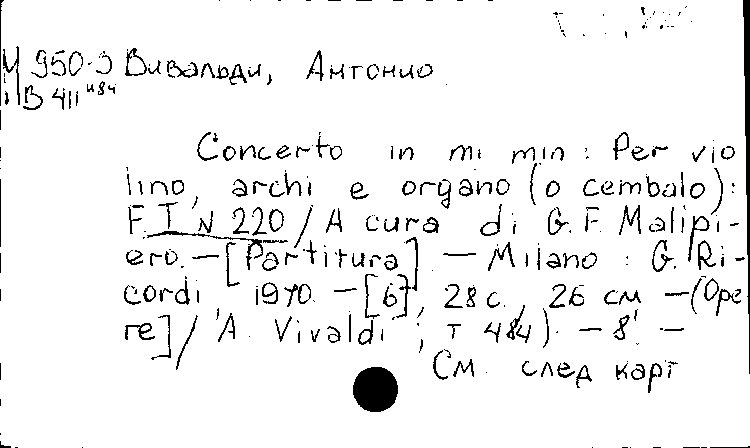 М 950-3 Вивальди, Антонио
В 411 "84
Concerto in mi min : Per vio
lino, archi e organo (o cembalo) :
F. I N 220 / A cura di G. F. Malipi-
ero. — [Partitura]. — Milano : G. Ri-
cordi, 1970. — [6], 28 с., 26 см — (Ope
re] / A. Vivaldi ; т 484). — 8'. —
См. след карт